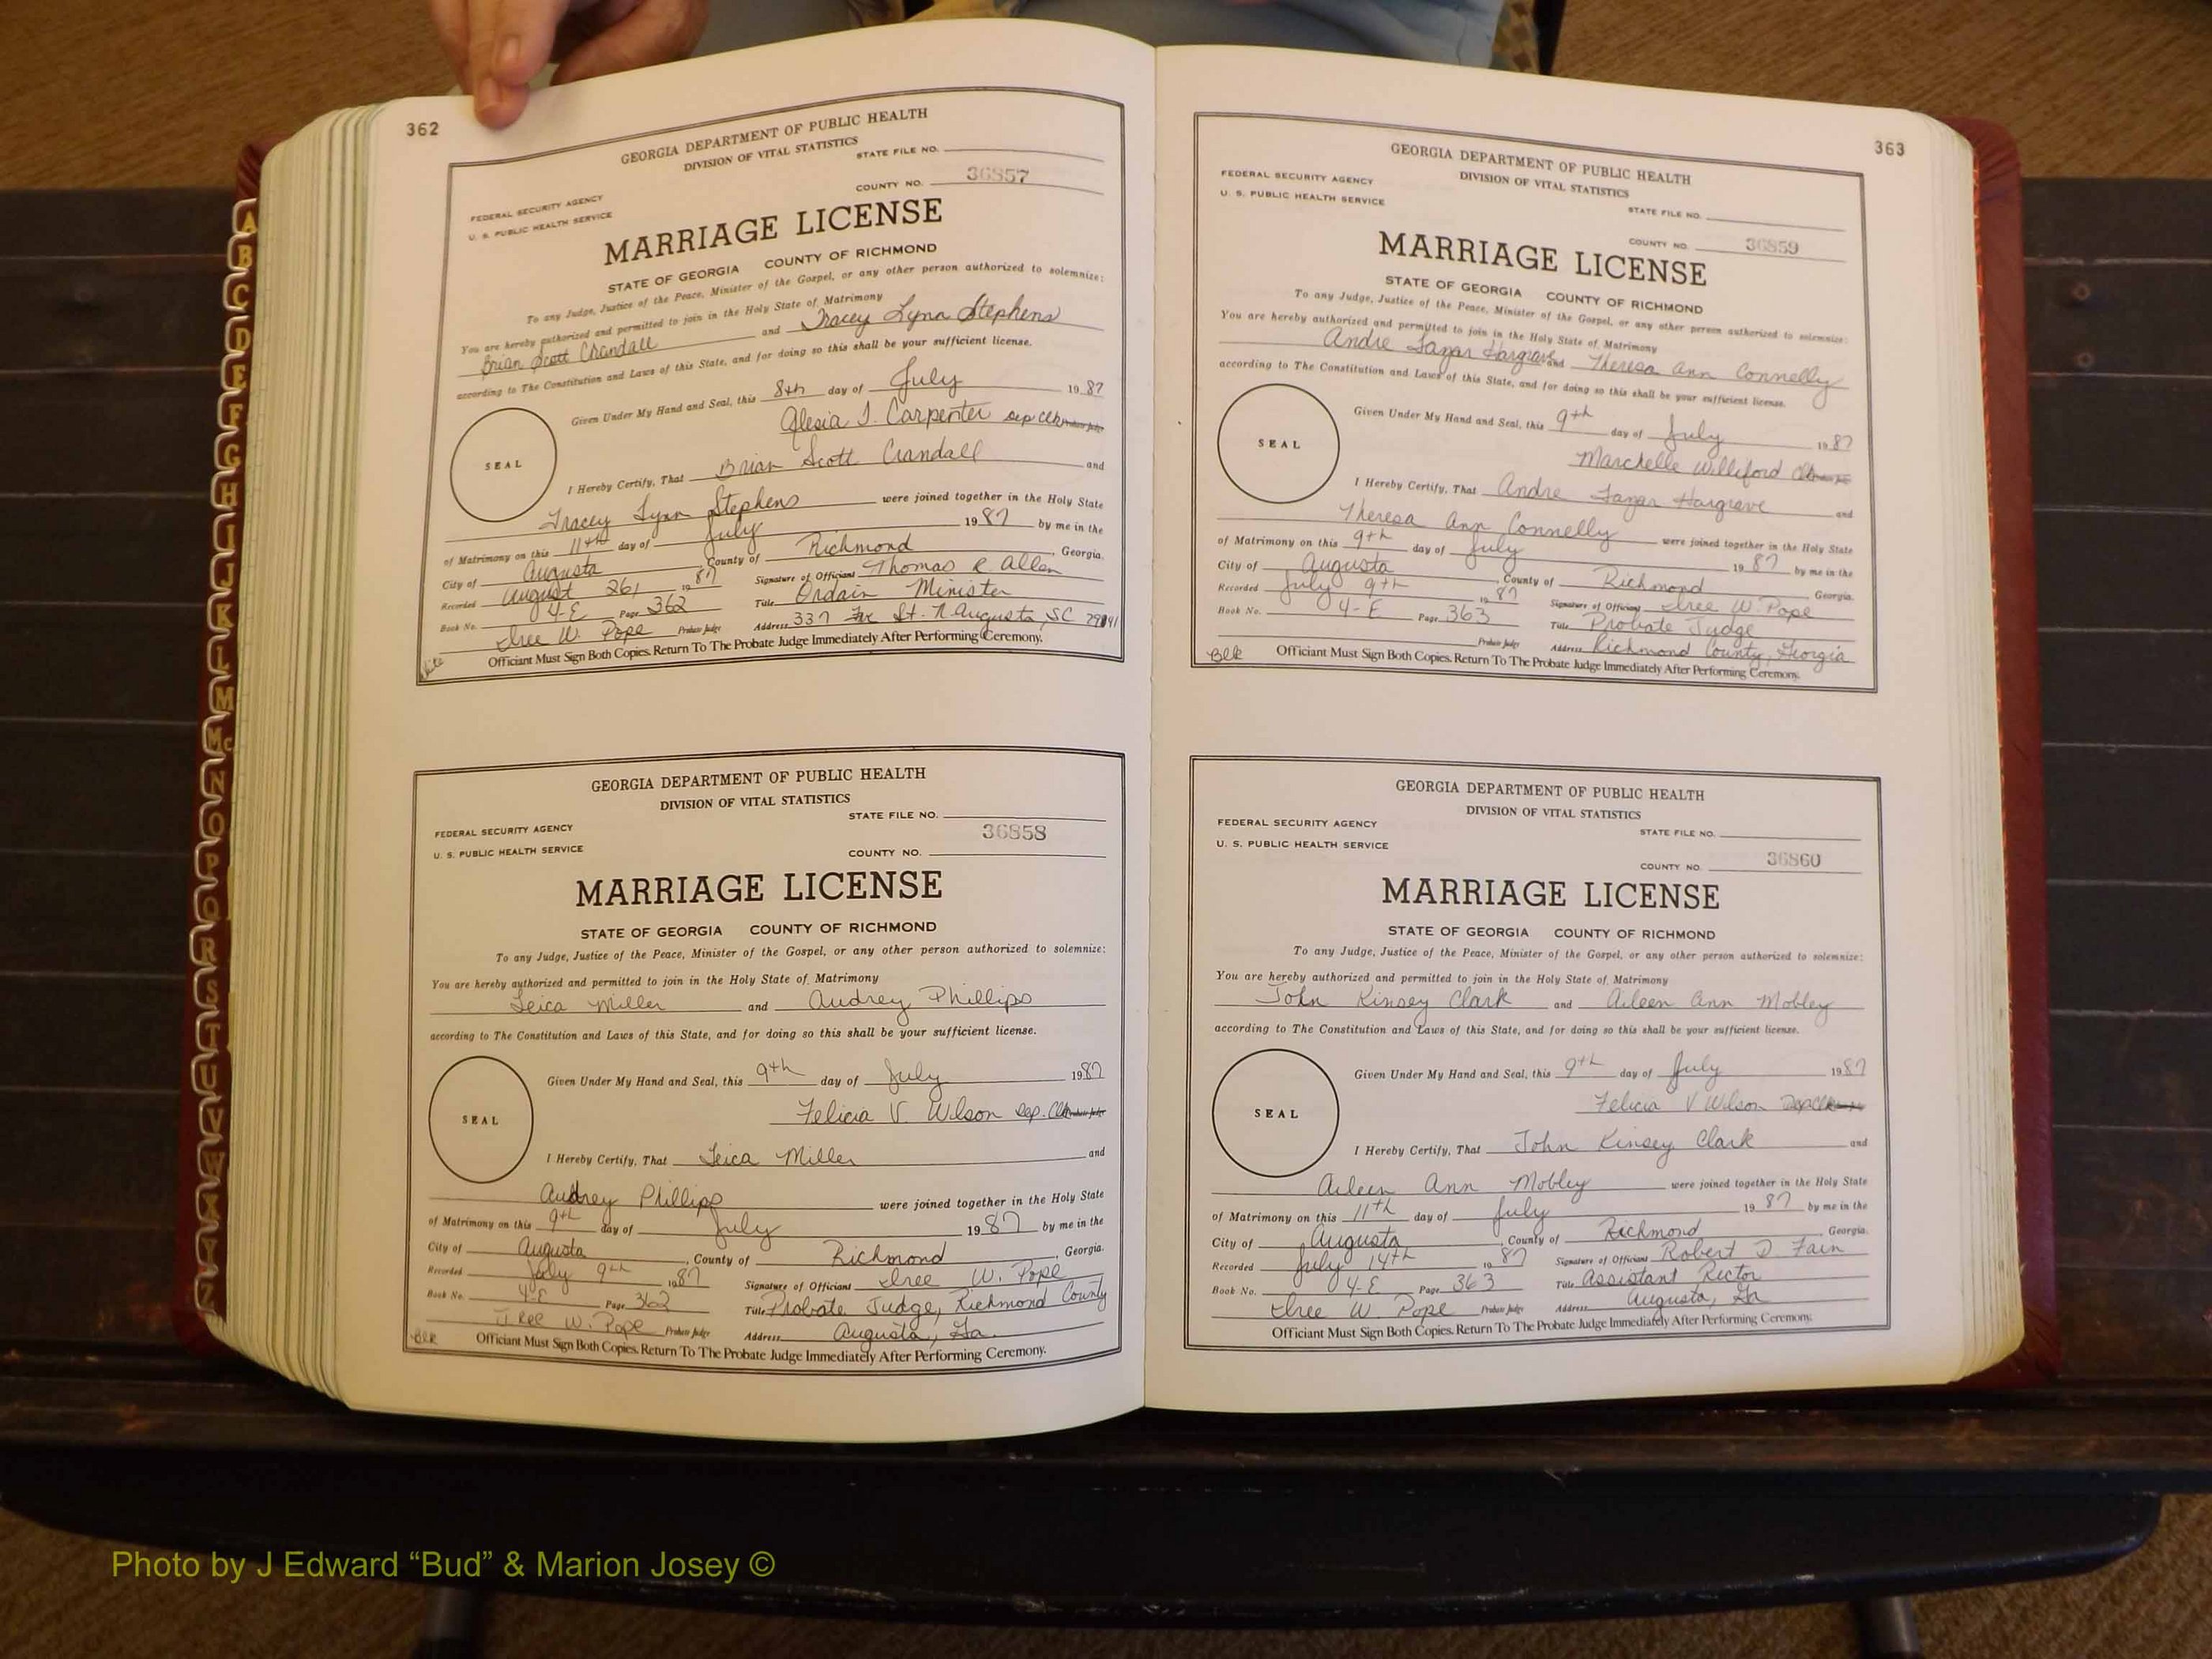 362
GEORGIA DEPARTMENT OF PUBLIC HEALTH
DIVISION OF VITAL STATISTICS
STATE FILE NO.
COUNTY NO. 36857
FEDERAL SECURITY AGENCY
U. S. PUBLIC HEALTH SERVICE
MARRIAGE LICENSE
STATE OF GEORGIA COUNTY OF RICHMOND
To any Judge, Justice of the Peace, Minister of the Gospel, or any other person authorized to solemnize:
You are hereby authorized and permitted to join in the Holy State of Matrimony
Brian Scott Crandall and Tracey Lynn Stephens
according to The Constitution and Laws of this State, and for doing so this shall be your sufficient license.
Given Under My Hand and Seal, this 8th day of July 1987
Alesia J. Carpenter Dep Clk Probate Judge
SEAL
I Hereby Certify, That Brian Scott Crandall and
Tracey Lynn Stephens were joined together in the Holy State
of Matrimony on this 11th day of July 1987 by me in the
City of Augusta County of Richmond, Georgia.
Recorded August 26, 1987 Signature of Officiant Thomas R Allen
Book No. 4-E Page 362 Title Ordain Minister
Iree W. Pope Probate Judge Address 337 St. N Augusta, SC
Officiant Must Sign Both Copies. Return To The Probate Judge Immediately After Performing Ceremony.
GEORGIA DEPARTMENT OF PUBLIC HEALTH
DIVISION OF VITAL STATISTICS
STATE FILE NO.
36858
FEDERAL SECURITY AGENCY
U. S. PUBLIC HEALTH SERVICE
COUNTY NO.
MARRIAGE LICENSE
STATE OF GEORGIA COUNTY OF RICHMOND
To any Judge, Justice of the Peace, Minister of the Gospel, or any other person authorized to solemnize:
You are hereby authorized and permitted to join in the Holy State of Matrimony
Leica Miller and Audrey Phillips
according to The Constitution and Laws of this State, and for doing so this shall be your sufficient license.
Given Under My Hand and Seal, this 9th day of July 1987
Felicia V. Wilson Dep. Clk Probate Judge
SEAL
I Hereby Certify, That Leica Miller and
Audrey Phillips were joined together in the Holy State
of Matrimony on this 9th day of July 1987 by me in the
City of Augusta, County of Richmond, Georgia.
Recorded July 9th 1987 Signature of Officiant Iree W. Pope
Book No. 4-E Page 362 Title Probate Judge, Richmond County
Iree W. Pope Probate Judge Address Augusta, Ga.
Blk Officiant Must Sign Both Copies. Return To The Probate Judge Immediately After Performing Ceremony.
363
GEORGIA DEPARTMENT OF PUBLIC HEALTH
DIVISION OF VITAL STATISTICS
FEDERAL SECURITY AGENCY
U. S. PUBLIC HEALTH SERVICE
STATE FILE NO.
COUNTY NO. 36859
MARRIAGE LICENSE
STATE OF GEORGIA COUNTY OF RICHMOND
To any Judge, Justice of the Peace, Minister of the Gospel, or any other person authorized to solemnize:
You are hereby authorized and permitted to join in the Holy State of Matrimony
Andre Hargrave and Theresa Ann Connelly
according to The Constitution and Laws of this State, and for doing so this shall be your sufficient license.
Given Under My Hand and Seal, this 9th day of July 1987
Marchelle Williford Clk
SEAL
I Hereby Certify, That Andre Hargrave and
Theresa Ann Connelly were joined together in the Holy State
of Matrimony on this 9th day of July 1987 by me in the
City of Augusta, County of Richmond Georgia.
Recorded July 9th 1987 Signature of Officiant Iree W. Pope
Book No. 4-E Page 363 Title Probate Judge
Probate Judge Address Richmond County, Georgia
Blk Officiant Must Sign Both Copies. Return To The Probate Judge Immediately After Performing Ceremony.
GEORGIA DEPARTMENT OF PUBLIC HEALTH
DIVISION OF VITAL STATISTICS
FEDERAL SECURITY AGENCY
STATE FILE NO.
U. S. PUBLIC HEALTH SERVICE
COUNTY NO. 36860
MARRIAGE LICENSE
STATE OF GEORGIA COUNTY OF RICHMOND
To any Judge, Justice of the Peace, Minister of the Gospel, or any other person authorized to solemnize:
You are hereby authorized and permitted to join in the Holy State of Matrimony
John Kinsey Clark and Aileen Ann Mobley
according to The Constitution and Laws of this State, and for doing so this shall be your sufficient license.
Given Under My Hand and Seal, this 9th day of July 1987
Felicia V Wilson Dep Clk
SEAL
I Hereby Certify, That John Kinsey Clark and
Aileen Ann Mobley were joined together in the Holy State
of Matrimony on this 11th day of July 1987 by me in the
City of Augusta, County of Richmond Georgia.
Recorded July 14th 1987 Signature of Officiant Robert D. Fain
Book No. 4-E Page 363 Title Assistant Rector
Iree W. Pope Probate Judge Address Augusta, Ga
Officiant Must Sign Both Copies. Return To The Probate Judge Immediately After Performing Ceremony.
A
B
C
D
E
F
G
H
I
J
K
L
M
Mc
N
O
P
Q
R
S
T
U
V
W
X
Y
Z
Photo by J Edward “Bud” & Marion Josey ©